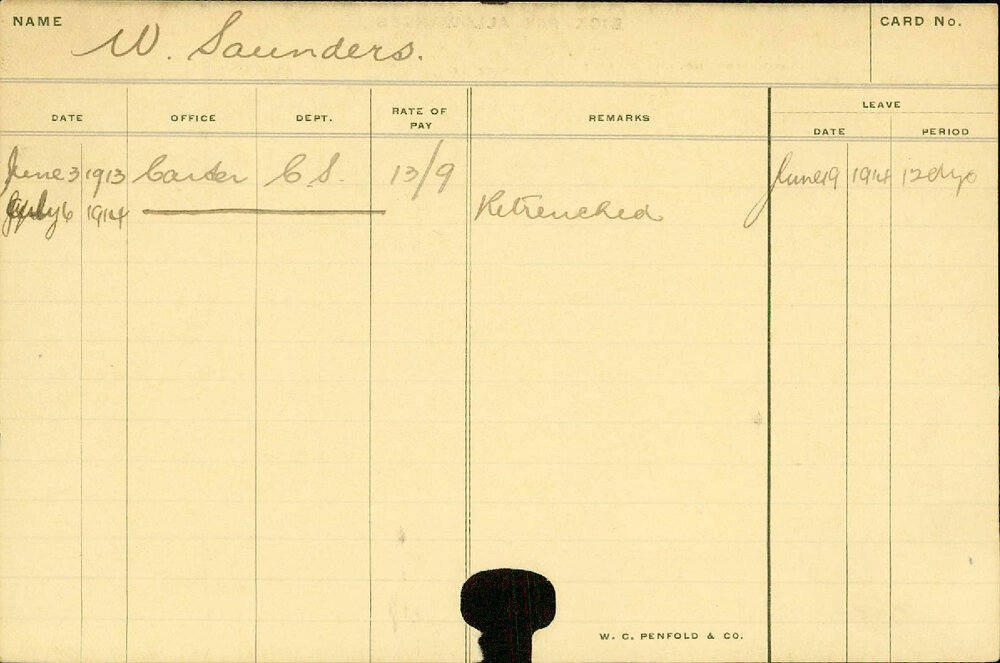 NAME W. Saunders. CARD No.
DATE OFFICE DEPT. RATE OF PAY REMARKS LEAVE DATE PERIOD
June 3 1913 Carter C.S. 13/9 June 19 1914 12 dys
July 6 1914 Retrenched
W. C. PENFOLD & CO.